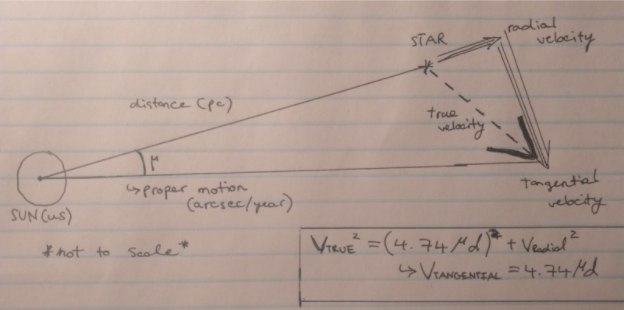 STAR
radial
velocity
distance (pc)
true
velocity
μ
↳ proper motion
(arcsec/year)
SUN (us)
tangential
velocity
*not to scale*
V_TRUE² = (4.74 μd)² + V_radial²
↳ V_TANGENTIAL = 4.74 μd